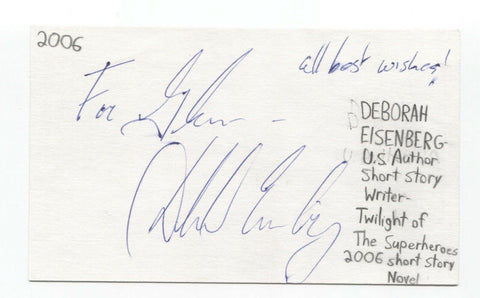 2006
all best wishes!
For Glenn -
Deborah Eisenberg
DEBORAH
EISENBERG
U.S. Author
Short story
Writer-
Twilight of
The Superheroes
2006 short story
Novel